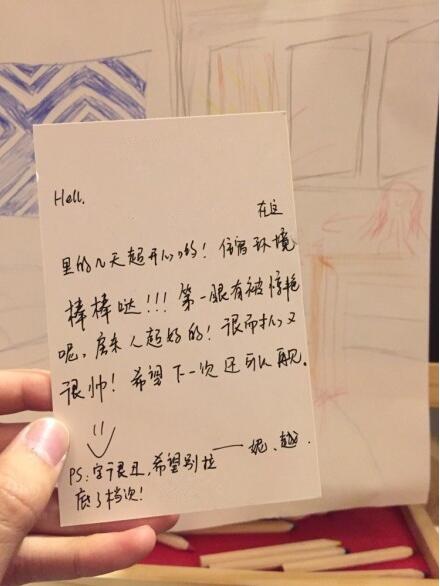 Hell.
在这
里的几天超开心的！住宿环境
棒棒哒！！！第一眼有被惊艳
呢，房东人超好的！很而且人又
很帅！希望下一次还可以再见。
——妮、越.
PS：字很丑，希望别拉
底了档次！